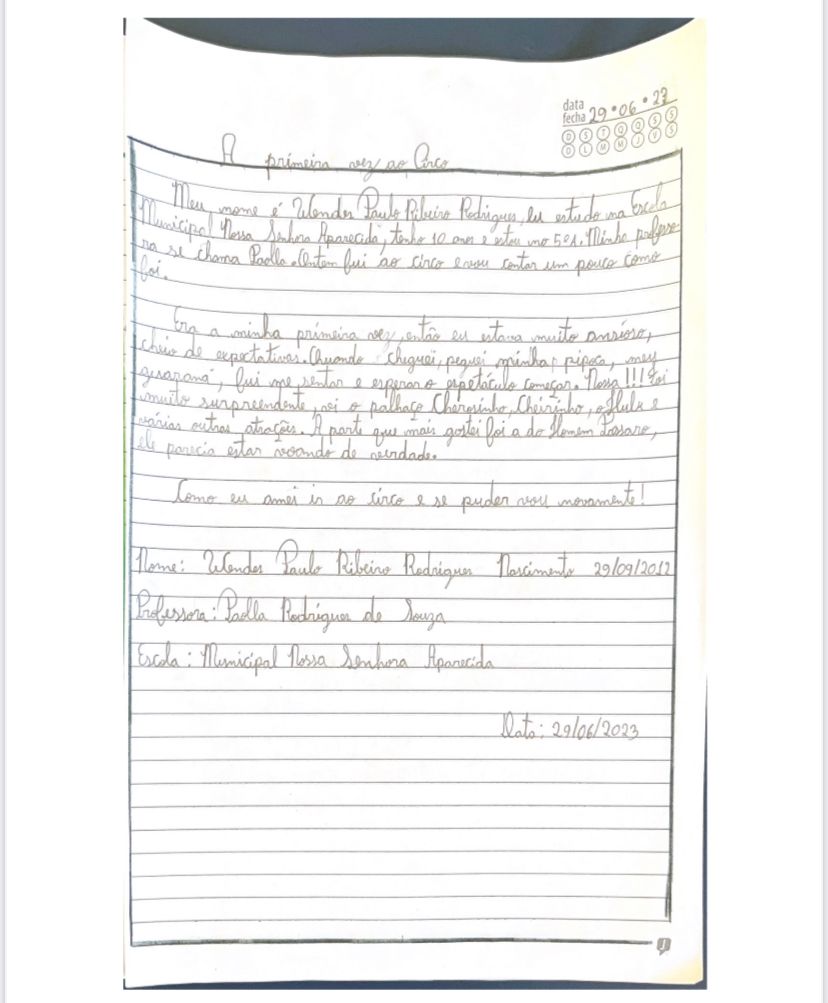 data
fecha 29 • 06 • 23
D S T Q Q S S
D L M M J V S
A primeira vez ao Circo
Meu nome é Wender Paulo Ribeiro Rodrigues, eu estudo na Escola
Municipal Nossa Senhora Aparecida, tenho 10 anos e estou no 5º1. Minha professo
ra se chama Paolla. Ontem fui ao circo e vou contar um pouco como
foi.
Era a minha primeira vez, então eu estava muito ansioso,
cheio de expectativas. Quando cheguei, peguei minha pipoca, meu
guaraná, fui me sentar e esperar o espetáculo começar. Nossa!!! Foi
muito surpreendente, vi o palhaço Cherosinho, Cheirinho, o Hulk e
várias outras atrações. A parte que mais gostei foi a do Homem Pássaro,
ele parecia estar voando de verdade.
Como eu amei ir ao circo e se puder vou novamente!
Nome: Wender Paulo Ribeiro Rodrigues Nascimento 29/09/2012
Professora: Paolla Rodrigues de Souza
Escola: Municipal Nossa Senhora Aparecida
Data: 29/06/2023